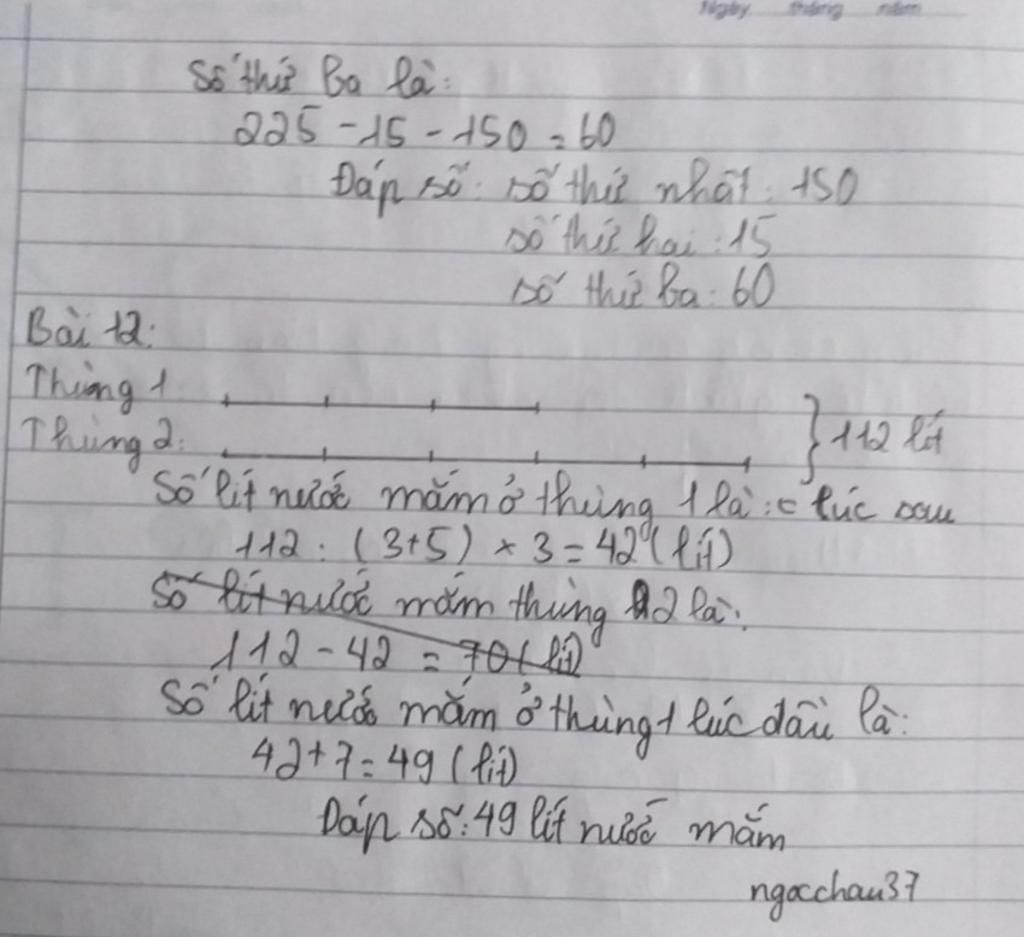 Ngày tháng năm
Số thứ ba là:
225 - 15 - 150 = 60
Đáp số: số thứ nhất: 150
số thứ hai: 15
số thứ ba: 60
Bài 12:
Thùng 1:
Thùng 2: } 112 lít
Số lít nước mắm ở thùng 1 là: lúc sau
112 : (3+5) × 3 = 42 (lít)
Số lít nước mắm thùng 2 là:
112 - 42 = 70 (lít)
Số lít nước mắm ở thùng 1 lúc đầu là:
42 + 7 = 49 (lít)
Đáp số: 49 lít nước mắm
ngocchau37